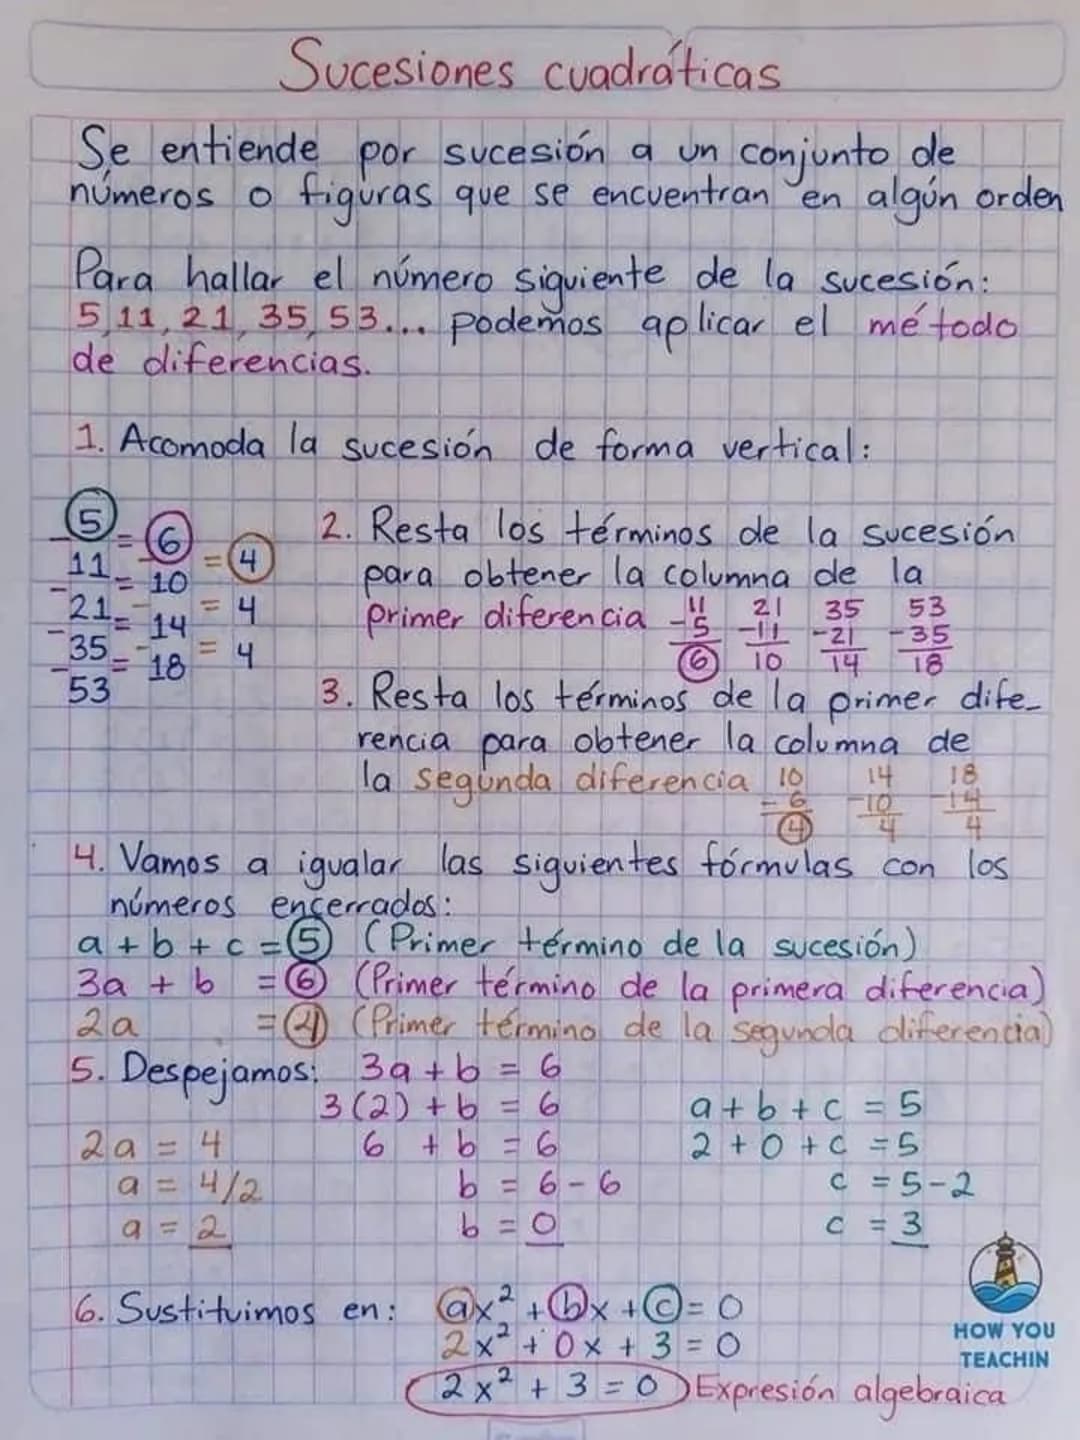 Sucesiones cuadráticas
Se entiende por sucesión a un conjunto de
números o figuras que se encuentran en algún orden
Para hallar el número siguiente de la sucesión:
5, 11, 21, 35, 53... podemos aplicar el método
de diferencias.
1. Acomoda la sucesión de forma vertical:
5
- = 6
11 = 4
- = 10
21 = 4
- = 14
35 = 4
- = 18
53
2. Resta los términos de la sucesión
para obtener la columna de la
primer diferencia
11 21 35 53
-5 -11 -21 -35
6 10 14 18
3. Resta los términos de la primer dife-
rencia para obtener la columna de
la segunda diferencia
10 14 18
-6 -10 -14
4 4 4
4. Vamos a igualar las siguientes fórmulas con los
números encerrados:
a + b + c = 5 (Primer término de la sucesión)
3a + b = 6 (Primer término de la primera diferencia)
2a = 4 (Primer término de la segunda diferencia)
5. Despejamos:
2a = 4
a = 4/2
a = 2
3a + b = 6
3(2) + b = 6
6 + b = 6
b = 6 - 6
b = 0
a + b + c = 5
2 + 0 + c = 5
c = 5 - 2
c = 3
6. Sustituimos en: ax² + bx + c = 0
2x² + 0x + 3 = 0
2x² + 3 = 0 Expresión algebraica
HOW YOU
TEACHIN